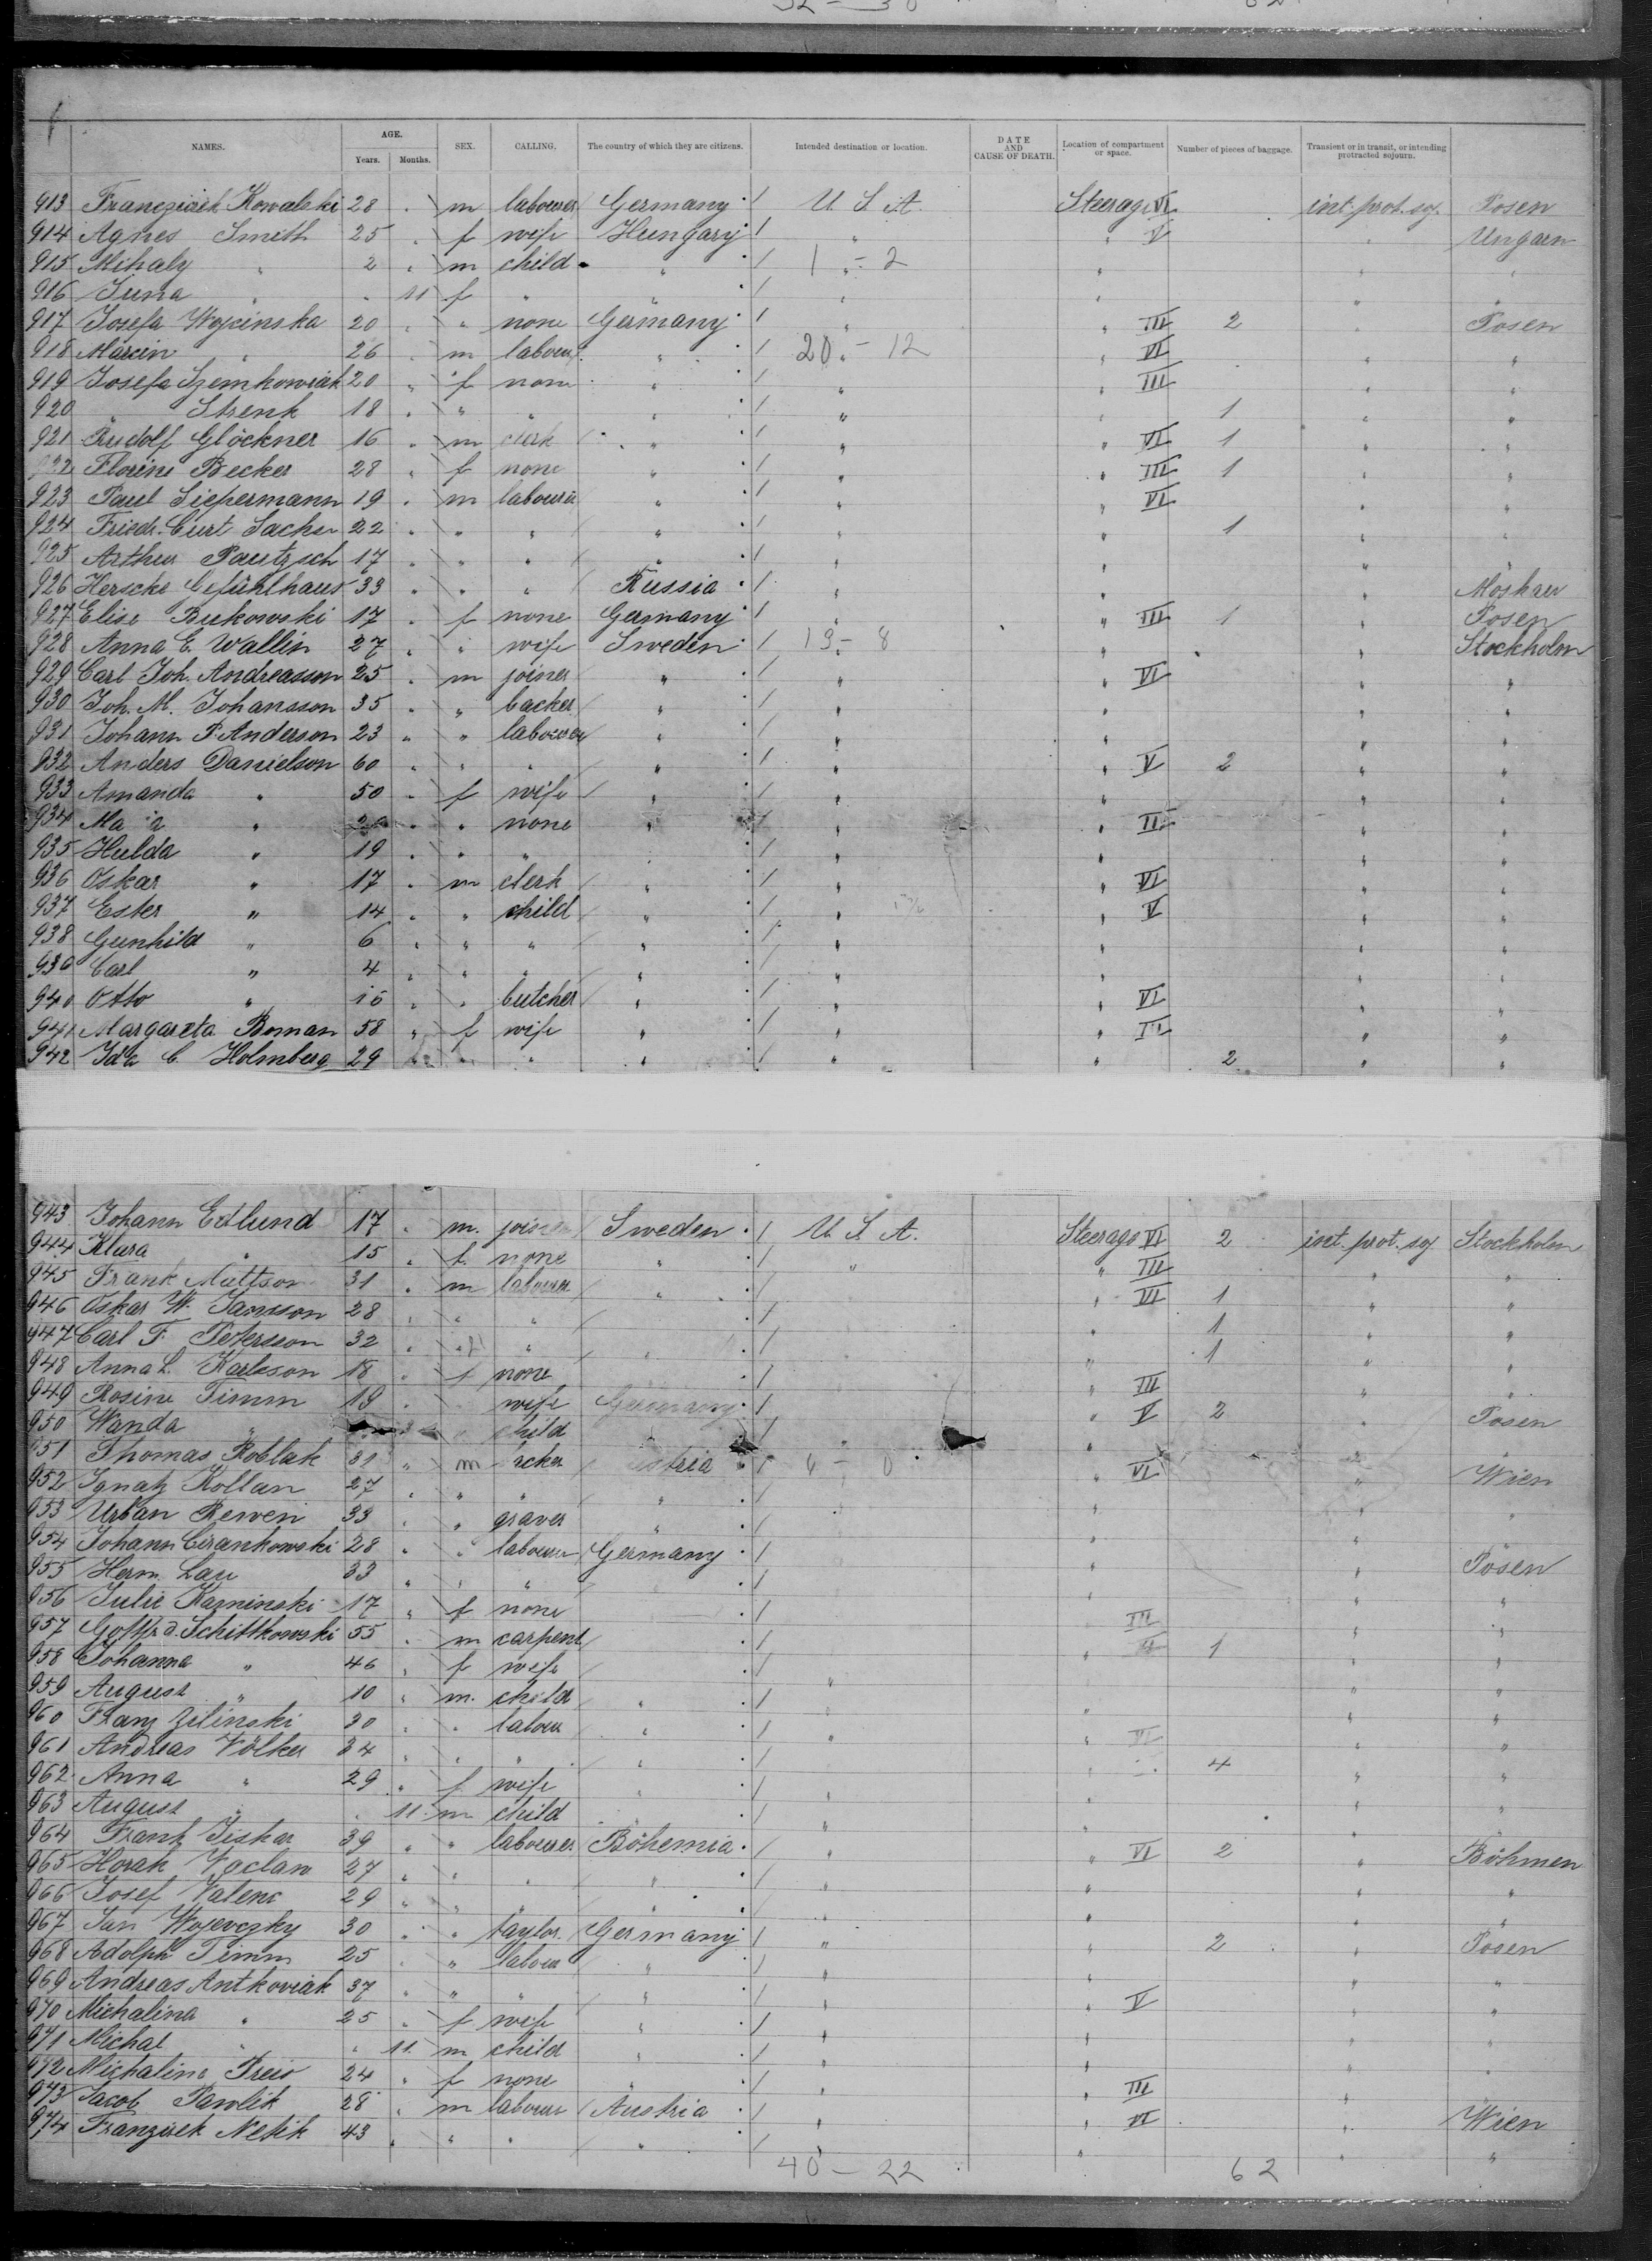 NAMES. AGE. Years. Months. SEX. CALLING. The country of which they are citizens. Intended destination or location. DATE AND CAUSE OF DEATH. Location of compartment or space. Number of pieces of baggage. Transient or in transit, or intending protracted sojourn.
913 Franczisek Kowalski 28 " m labourer Germany U. S. A. Steerage VI int. prot. soj. Posen
914 Agnes Smith 25 " f wife Hungary " " V " Ungarn
915 Mihaly " 2 " m child " 1 - 2 " " "
916 " " 11 f " " " " " "
917 Josefa Wojcinska 20 " " none Germany " " III 2 " Posen
918 Marcin " 26 " m labour " 20 - 12 " VI " "
919 Josefa Szemkowiak 20 " f none " " " III " "
920 " Strenk 18 " " " " " " 1 " "
921 Rudolf Glöckner 16 " m clerk " " " VI 1 " "
922 Florine Becker 28 " f none " " " III 1 " "
923 Paul Siepermann 19 " m labourer " " " VI " "
924 Friedr. Curt Sachse 22 " " " " " " 1 " "
925 Arthur Pautzsch 17 " " " " " " " "
926 Herscke Gefühlhaus 33 " " " Russia " " " Moskau
927 Elise Bukowski 17 " f none Germany " " III 1 " Posen
928 Anna E. Wallin 27 " " wife Sweden 13 - 8 " " Stockholm
929 Carl Joh. Andreasson 25 " m joiner " " " VI " "
930 Joh. M. Johansson 35 " " backer " " " " "
931 Johann P. Anderson 23 " " labourer " " " " "
932 Anders Danielson 60 " " " " " " V 2 " "
933 Amanda " 50 " f wife " " " " "
934 " " " none " " " " "
935 Hulda " 19 " " " " " " " "
936 Oskar " 17 " m clerk " " " VI " "
937 Ester " 14 " " child " " " V " "
938 Gunhild " 6 " " " " " " " "
939 Carl " 4 " " " " " " " "
940 Otto " " " butcher " " " VI " "
941 Margareta Boman 58 " f wife " " " " "
942 Ida C. Holmberg 29 " " " " " " 2 " "
943 Johann Edlund 17 " m. joiner Sweden U. S. A. Steerage VI 2 int. prot. soj. Stockholm
944 Klara " 15 " f. none " " " III " "
945 Frank Mattson 31 " m labourer " " VI 1 " "
946 Oskar W. Jansson 28 " " " " 1 " "
947 Carl F. Petersson 32 " " " " " 1 " "
948 Anna L. Karlsson 18 " f none " III " "
949 Rosine Timm 19 " wife Germany " V 2 " Posen
950 Wanda " child " "
951 Thomas Koblak 31 " m 4 - 0 " VI " Wien
952 Ignatz Kollan 27 " " " " " " "
953 Urban Reweni 33 " " graver " " " "
954 Johann Cirankowski 28 " " labourer Germany " " Posen
955 Herm. Lau 33 " " " " " "
956 Julie Kaminski 17 " f none III " "
957 Gottfr. d. Schittkowski 55 " m carpent " 1 " "
958 Johanna " 46 " f wife " " "
959 August " 10 " m. child " " " "
960 Franz Zilinski 30 " " labour " " " VI " "
961 Andreas Völker 34 " " " " 4 " "
962 Anna " 29 " f wife " " " " "
963 August " " 11 m child " " " "
964 Frantz Jiskar 39 " " labourer Böhemia " " VI 2 " Böhmen
965 Horak Vaclaw 27 " " " " " " " "
966 Josef Valenc 29 " " " " " " " "
967 Jan Wojevczky 30 " " taylor Germany " " 2 " Posen
968 Adolph Timm 25 " " labour " " " " "
969 Andreas Antkoviak 37 " " " " " " V " "
970 Michalina " 25 " f wife " " " " "
971 Michal " " 11 m child " " " " "
972 Michaline Preis 24 " f none " " " III " "
973 Jacob Pawlik 28 " m labourer Austria " " VI " Wien
974 Franzisek 43 " " " " " " " "
40 - 22 62